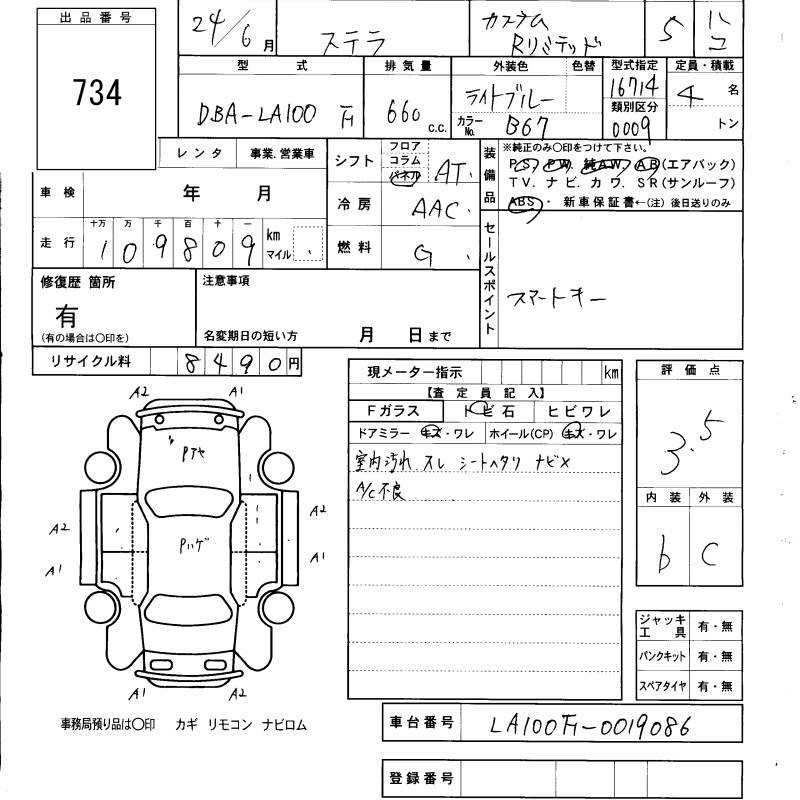 出品番号
734
24/6 月 ステラ カスタム Rリミテッド 5 ハコ
型式 排気量 外装色 色替 型式指定 定員・積載
DBA-LA100F 660 C.C. ライトブルー 16714 4 名
カラーNo. B67 類別区分 0009 トン
レンタ 事業.営業車 シフト フロア コラム パネル AT.
装備品 ※純正のみ〇印をつけて下さい。
PS. PW. 純AW. AB(エアバック)
TV. ナビ. カワ. SR(サンルーフ)
ABS ・ 新車保証書←(注) 後日送りのみ
車検 年 月 冷房 AAC.
走行 十万 万 千 百 十 一
109809 km マイル 燃料 G.
セールスポイント スマートキー
修復歴 箇所 注意事項
有
(有の場合は〇印を) 名変期日の短い方 月 日まで
リサイクル料 8490円
現メーター指示 km
【査定員記入】
Fガラス トビ石 ヒビワレ
ドアミラー キズ・ワレ ホイール(CP) キズ・ワレ
室内汚れ スレ シートヘタリ ナビ×
A/C不良
評価点
3.5
内装 外装
b C
A2 A1
Pアセ
A2 A2
Pハゲ
A1 A1
A1 A2
ジャッキ工具 有・無
パンクキット 有・無
スペアタイヤ 有・無
事務局預り品は〇印 カギ リモコン ナビロム
車台番号 LA100F-0019086
登録番号